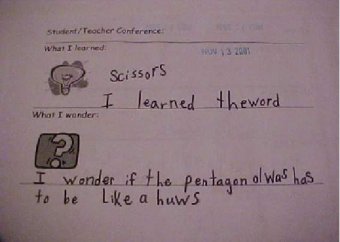 Student/Teacher Conference:
What I learned:
NOV 13 2001
Scissors
I learned theword
What I wonder:
I wonder if the pentagon olwas has
to be like a huws